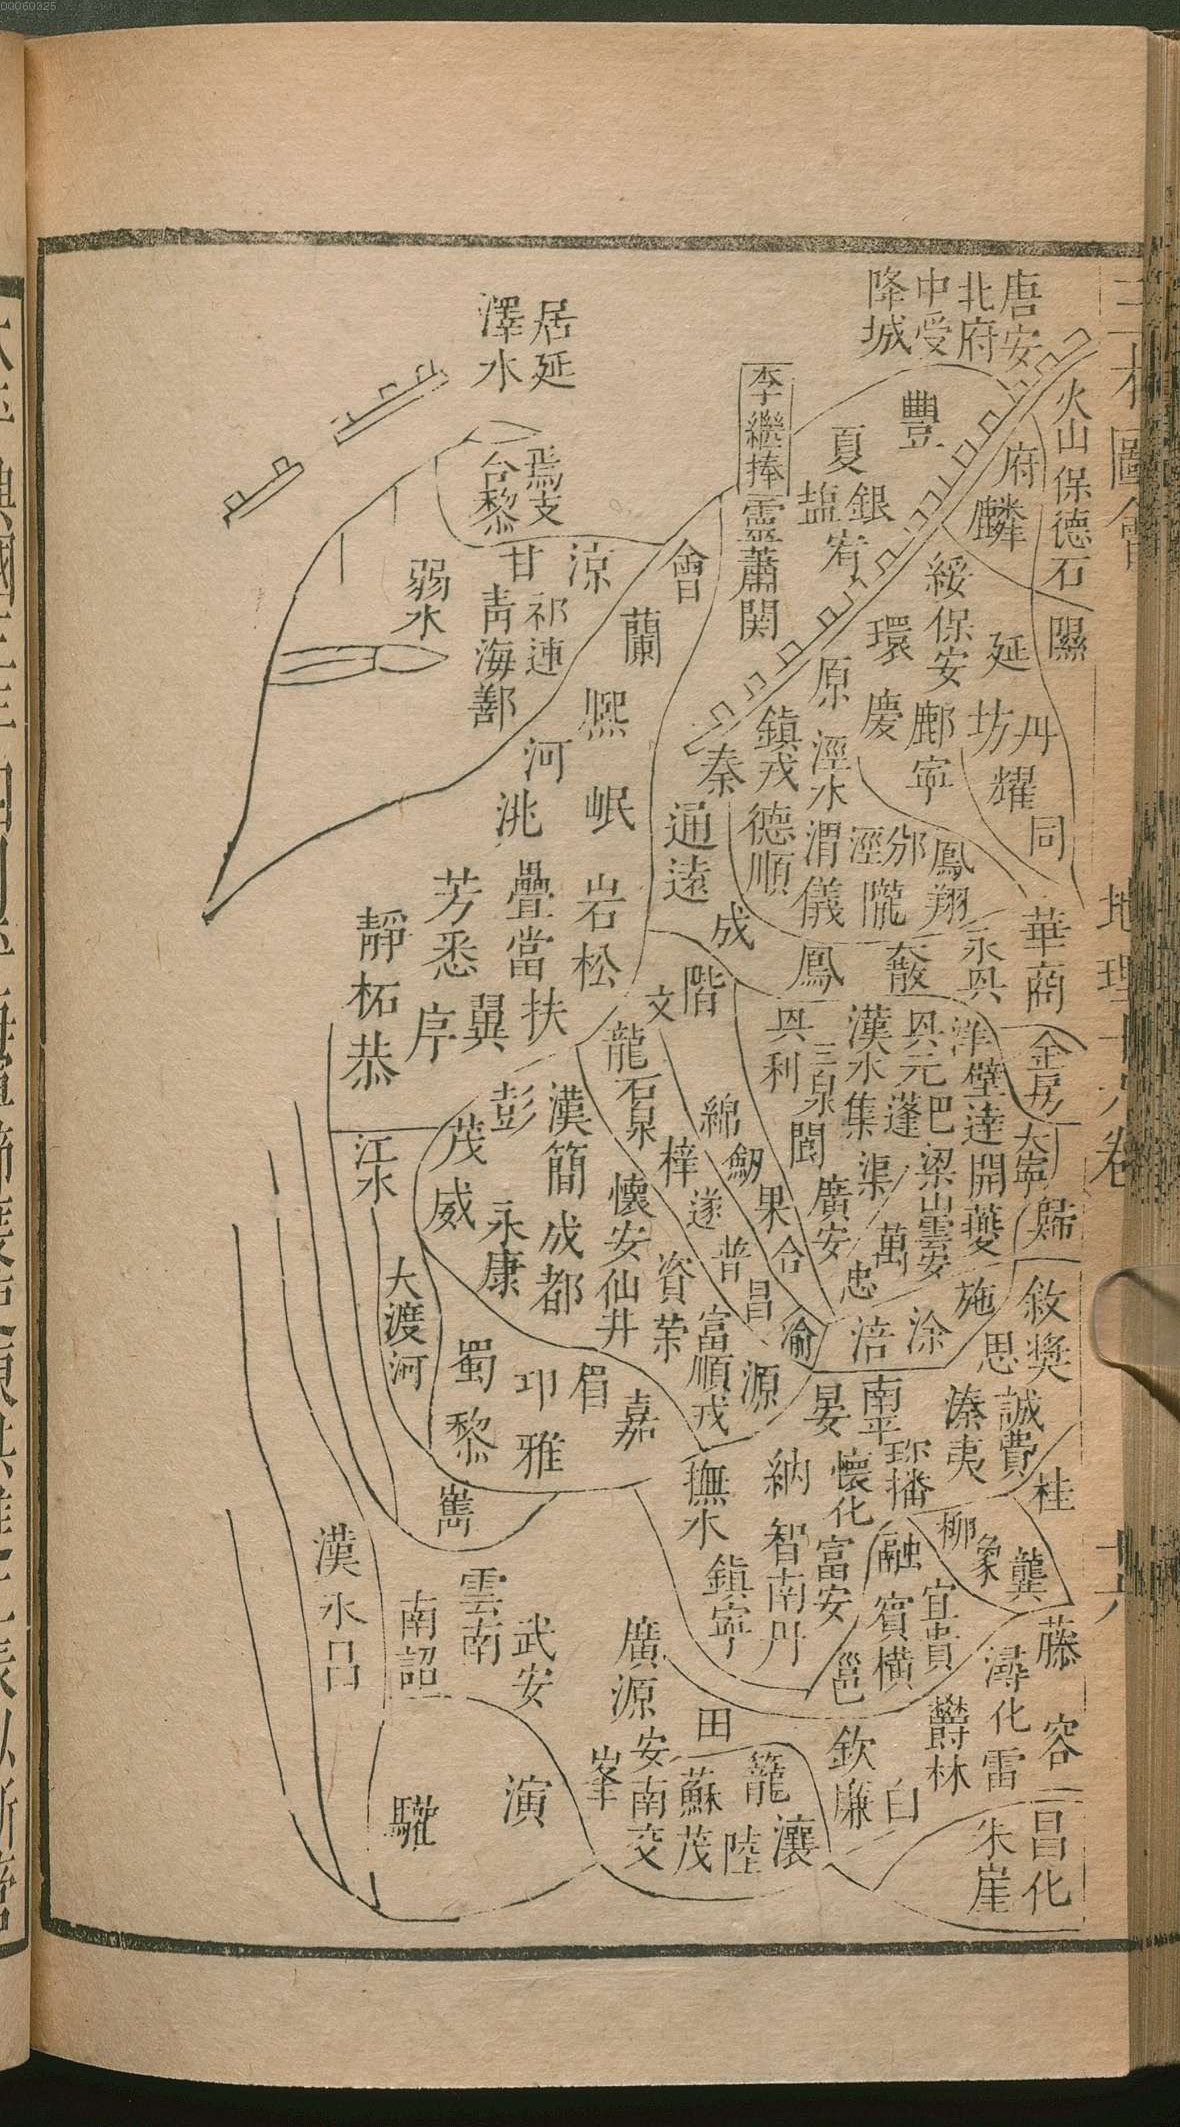 00060325
三才圖會
地理十六卷
共
唐安
北府
中受
降城
火山保德石
隰
府
麟
豐
夏
銀
鹽
宥
李繼捧
靈
蕭関
居延
澤水
焉支
合黎
甘
涼
祁連
青海鄯
弱水
會
蘭
熙
河
洮
岷
綏
保安
延
環
慶
鄜
坊
丹
耀
寧
同
原
涇水
鎮戎
秦
德順
渭
儀
涇
邠
隴
鳳翔
通遠
成
階
文
鳳
散
永兴
華
商
金房
芳
悉
疊
當
岩
松
靜
柘
恭
序
翼
扶
龍
石泉
兴
利
三泉
漢水
兴元
洋
集
蓬
巴
壁
達
開
夔
大寧
歸
閬
渠
梁山
雲安
廣安
萬
忠
綿
劔
梓
果
合
遂
普
昌
渝
涪
涂
施
彭
漢
簡
茂
威
永康
成都
懷安
仙井
資
荣
富順
戎
源
江水
大渡河
蜀
黎
卭
雅
眉
嘉
敘
獎
思
誠
費
溱
夷
南平
晏
珍
播
懷化
納
撫水
桂
嶲
漢永昌
雲南
南詔
武安
智
南丹
鎮寧
富安
融
柳
象
龔
宜
貴
賓
橫
邕
藤
潯
化
容
雷
欝林
廣源
田
欽
廉
白
峯
安南
交
蘇茂
籠
陸
瀼
演
驩
朱崖
昌化